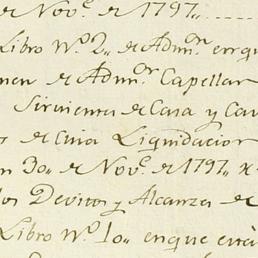 de Nov.ᵉ de 1797,, .....
Libro N.º 2,, de Adm.ºⁿ en qu
men de Adm.ºʳ Capellan
Sirvientes de Casa y Ca
de Cuia Liquidacion
n 30,, de Nov.ᵉ de 1797,, x
los Devitos y Alcanzes de
Libro N.º 10,, en que està